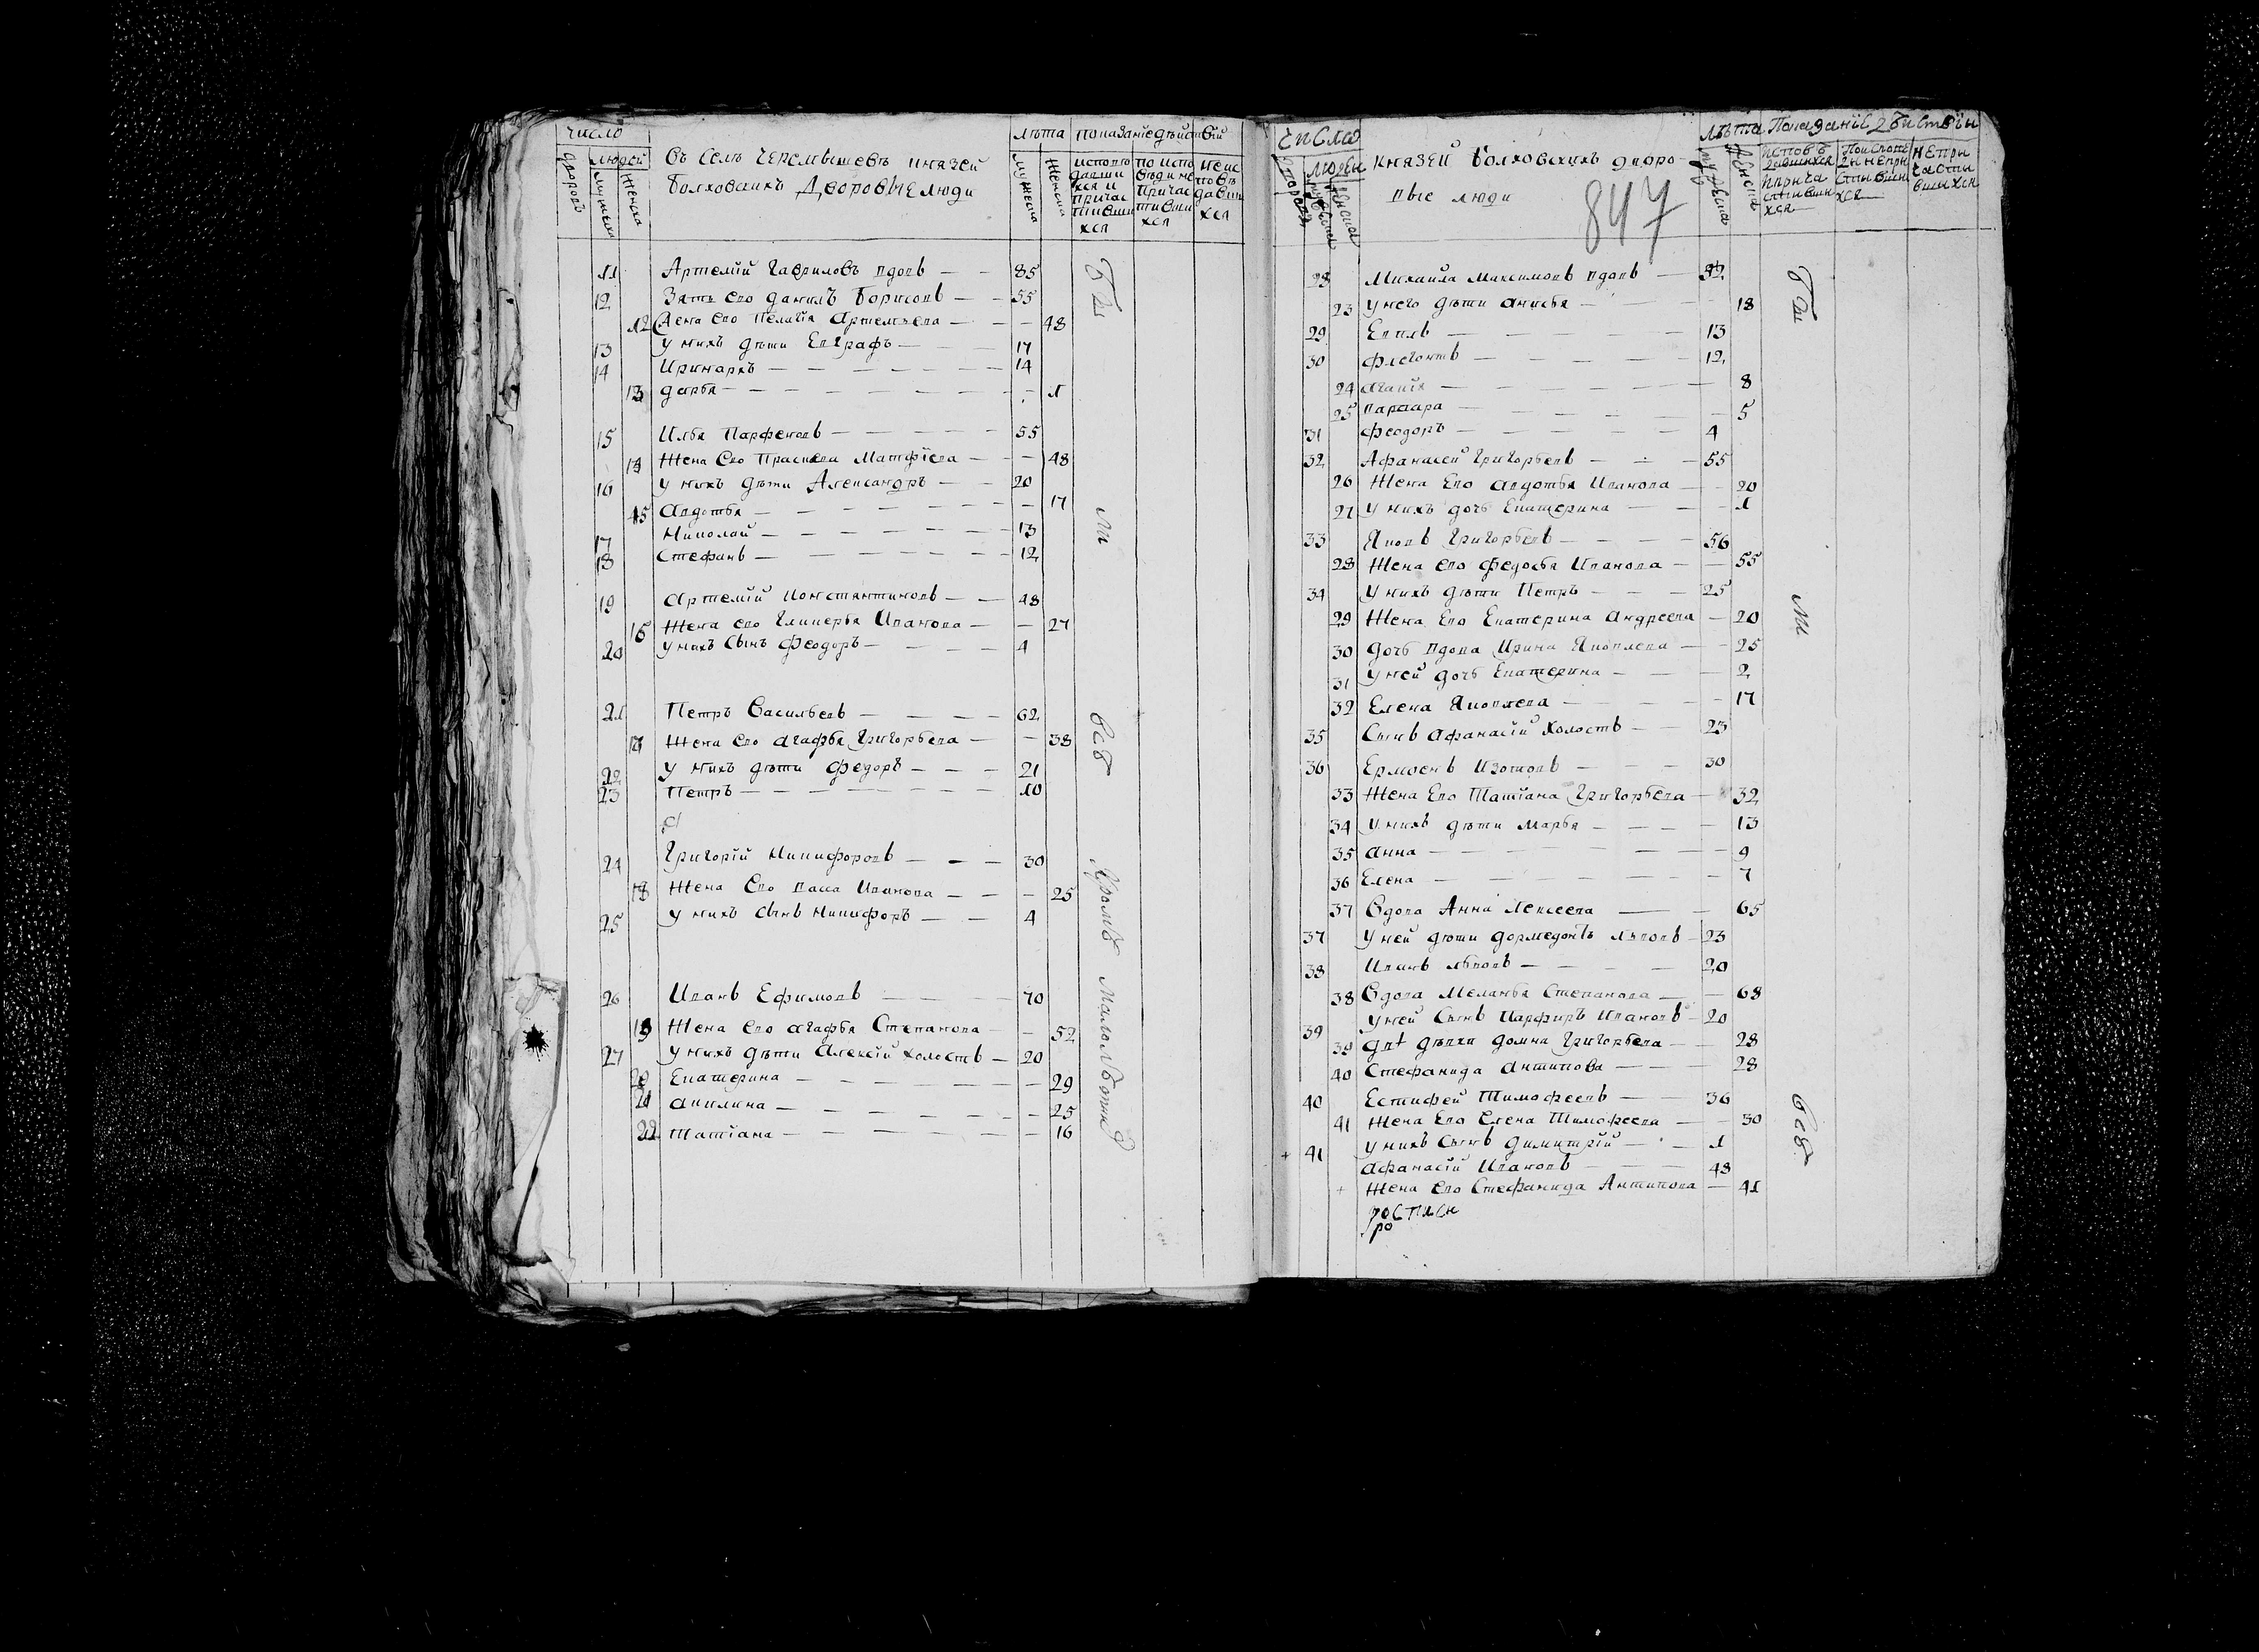 Число
Людей
дворовъ
мужеска
женска
Въ Селѣ Черемышевѣ князей
Болховскихъ Дворовые люди
лѣта
мужеска
женска
показанїе дѣйствїй
исповѣдавшихся и причастившихся
по исповѣди не причастившихся
не исповѣдавшихся
11 Артемїй Гавриловъ вдовъ — — 85
12 Зять его данилъ Борисовъ — — 55
12 Жена его Пелагїя Артемьева — — — 48
13 у нихъ дѣти Евграфъ — — — 17
14 Иринархъ — — — — — — 14
13 дарья — — — — — — — 1
15 Илья Парфеновъ — — — — 55
14 Жена его Прасковa Матфїева — — — 48
16 у нихъ дѣти Александръ — — 20
15 Авдотья — — — — — — — 17
17 Николай — — — — — — 13
18 Стефанъ — — — — — — 12
19 Артемїй Константиновъ — — 48
16 Жена его Гликерья Иванова — — 27
20 у нихъ Сынъ Феодоръ — — — — 4
21 Петръ Васильевъ — — — — 62
17 Жена его Агафья Григорьева — — 38
22 У нихъ дѣти Федоръ — — — 21
23 Петръ — — — — — — — 10
24 Григорїй Никифоровъ — — — 30
18 Жена Его Васса Иванова — — — 25
25 у нихъ сынъ Никифоръ — — 4
26 Иванъ Ефимовъ — — — 70
19 Жена его Агафья Степанова — — 52
27 У нихъ дѣти Алексїй холостъ — 20
20 Екатерина — — — — — — — 29
21 Акилина — — — — — — — 25
22 Татїана — — — — — — — 16
Бы
ли
всѣ
Кромѣ Малолѣтнѣ
Число
дворовъ
Людей
мужеска
женска
князей Болховскихъ дворо-
вые люди
847
Лѣта
мужеска
женска
Показанїе дѣйствїй
исповѣдавшихся и причастившихся
По исповѣди не причастившихся
Непричастившихся
28 Михайла Максимовъ вдовъ —
23 у него дѣти Анисья — — — 18
29 Евплъ — — — — — 13
30 Флегонтъ — — — — — 12
24 Агапїя — — — — — — 8
25 Варвара — — — — — — 5
31 Феодоръ — — — — — 4
32 Афанасей Григорьевъ — — — 55
26 Жена Его Авдотья Иванова — — 20
27 у нихъ дочь Екатерина — — — 1
33 Яковъ Григорьевъ — — — — 56
28 Жена его Федосья Иванова — — 55
34 У нихъ дѣти Петръ — — — 25
29 Жена Его Екатерина Андреева — 20
30 дочь вдова Ирина Яковлева — — 25
31 у ней дочь Екатерина — — — 2
32 Елена Яковлева — — — — — 17
35 Сынъ Афанасїй холостъ — — 23
36 Ермоенъ Изотовъ — — — 30
33 Жена Его Татїана Григорьева — 32
34 У нихъ дѣти Марья — — — — 13
35 Анна — — — — — — — 9
36 Елена — — — — — — — 7
37 Вдова Анна Алексеева — — 65
37 у ней дѣти дормедонтъ львовъ — 23
38 Иванъ львовъ — — — — 20
38 Вдова Меланья Степанова — — 68
39 у ней Сынъ Парфиръ Ивановъ — 20
39 двѣ дѣвки домна Григорьева — — 28
40 Стефанида Антипова — — — 28
40 Естифей Тимофеевъ — — 36
41 Жена Его Елена Тимофеева — — 30
41 у нихъ Сынъ Димитрїй — — 1
+ Афанасїй Ивановъ — — — 48
+ Жена его Стефанида Антипова — 41
росписи
ро
Бы
ли
всѣ